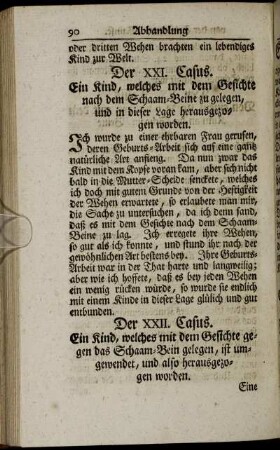 90 Abhandlung
oder dritten Wehen brachten ein lebendiges
Kind zur Welt.
Der XXI. Casus.
Ein Kind, welches mit dem Gesichte
nach dem Schaam-Beine zu gelegen,
und in dieser Lage herausgezo-
gen worden.
Ich wurde zu einer ehrbaren Frau gerufen,
deren Geburts-Arbeit sich auf eine gantz
natürliche Art anfieng. Da nun zwar das
Kind mit dem Kopfe voran kam, aber sich nicht
bald in die Mutter-Scheide senckete, welches
ich doch mit gutem Grunde von der Hefftigkeit
der Wehen erwartete, so erlaubete man mir,
die Sache zu untersuchen, da ich denn fand,
daß es mit dem Gesichte nach dem Schaam-
Beine zu lag. Ich erregete ihr Wehen,
so gut als ich konnte, und stund ihr nach der
gewöhnlichen Art bestens bey. Ihre Geburts-
Arbeit war in der That harte und langweilig;
aber wie ich hoffete, daß es bey jeden Wehen
ein wenig rücken würde, so wurde sie endlich
mit einem Kinde in dieser Lage glülich und gut
entbunden.
Der XXII. Casus.
Ein Kind, welches mit dem Gesichte ge-
gen das Schaam-Bein gelegen, ist um-
gewendet, und also herausgezo-
gen worden.
Eine